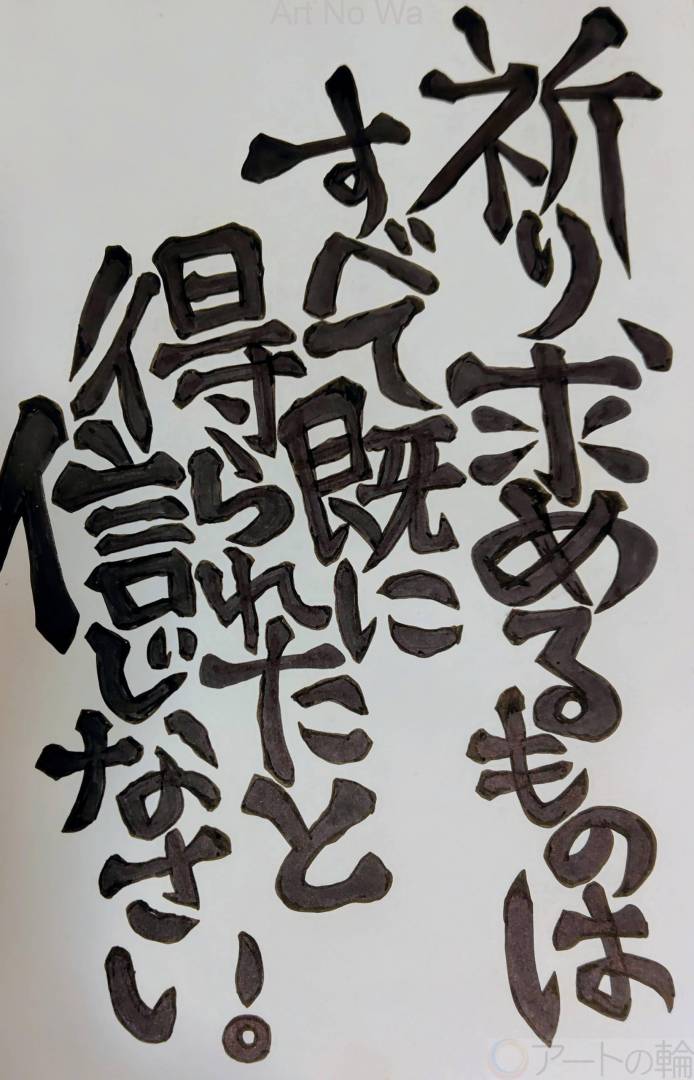 Art No Wa
祈り、求めるものは
すべて既に
得られたと
信じなさい!
アートの輪